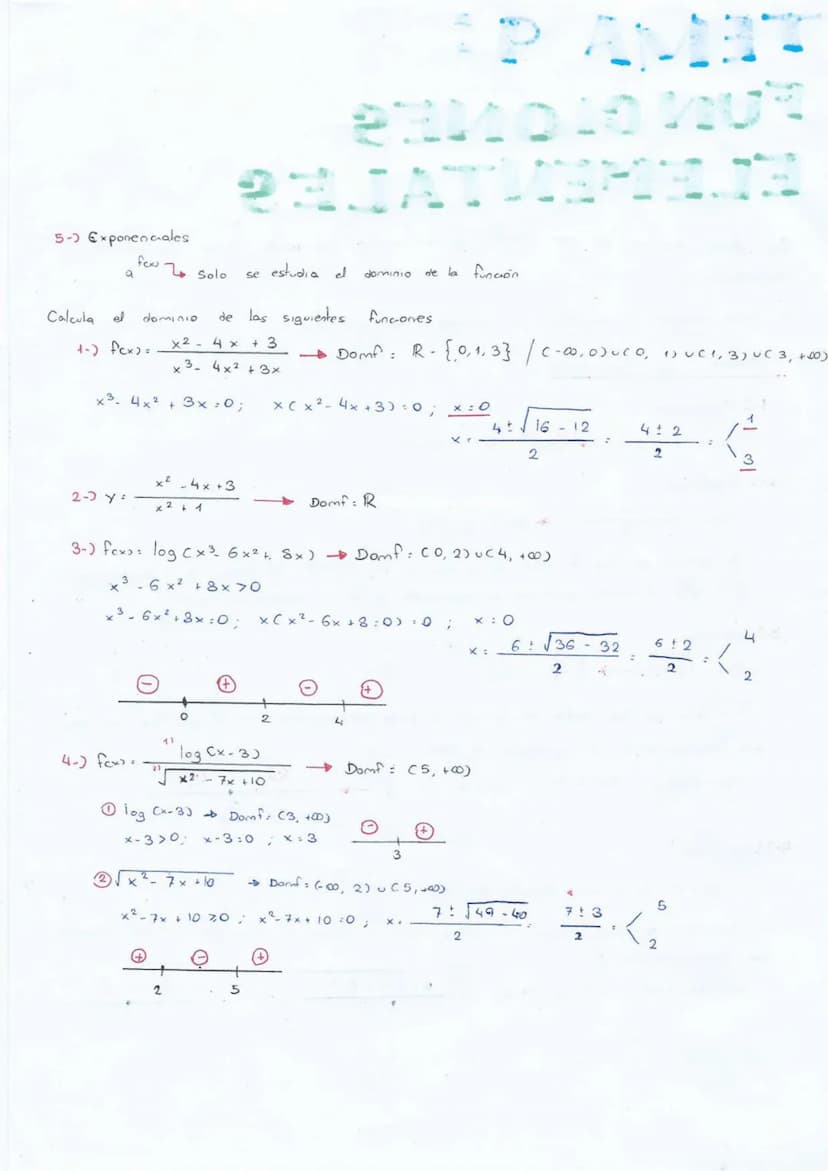 TEMA 9:
FUNCIONES
ELEMENTALES
5-) Exponenciales
a^f(x) ↳ Solo se estudia el dominio de la función
Calcula el dominio de las siguientes funciones
1-) f(x) = (x² - 4x + 3)/(x³ - 4x² + 3x) → Domf: R - {0,1,3} / (-∞,0)∪(0, 1)∪(1, 3)∪(3, +∞)
x³ - 4x² + 3x = 0; x(x² - 4x + 3) = 0; x = 0
x = (4 ± √(16 - 12))/2 = (4 ± 2)/2 = < 1 3
2-) y = (x² - 4x + 3)/(x² + 1) → Domf: R
3-) f(x) = log(x³ - 6x² + 8x) → Domf: (0, 2)∪(4, +∞)
x³ - 6x² + 8x > 0
x³ - 6x² + 8x = 0; x(x² - 6x + 8 = 0) = 0; x = 0
x = (6 ± √(36 - 32))/2 = (6 ± 2)/2 = < 4 2
- + - +
0 2 4
4-) f(x) = 1) log(x-3) / 2) √(x² - 7x + 10) → Domf: (5, +∞)
① log(x-3) → Domf: (3, +∞)
x-3 > 0; x-3 = 0; x = 3
- +
3
② √(x² - 7x + 10) → Domf: (-∞, 2)∪(5, +∞)
x² - 7x + 10 ≥ 0; x² - 7x + 10 = 0; x = (7 ± √(49 - 40))/2 = (7 ± 3)/2 = < 5 2
+ - +
2 5